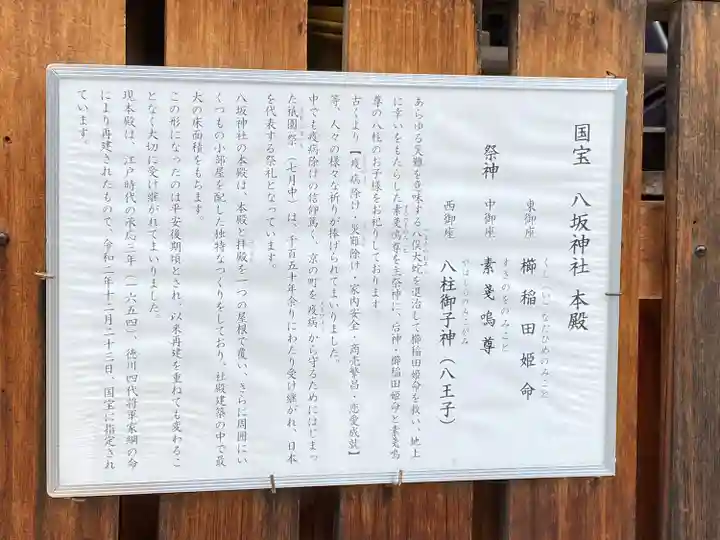 国宝 八坂神社 本殿
東御座 櫛稲田姫命
くし(い)なだひめのみこと
祭神 中御座 素戔嗚尊
すさのをのみこと
西御座 八柱御子神(八王子)
やはしらのみこがみ
あらゆる災難を意味する八俣大蛇を退治して櫛稲田姫命を救い、地上
に幸いをもたらした素戔嗚尊を主祭神に、后神・櫛稲田姫命と素戔嗚
尊の八柱のお子様をお祀りしております
古くより【疫病除け・災難除け・家内安全・商売繁昌・恋愛成就】
等、人々の様々な祈りが捧げられてまいりました。
中でも疫病除けの信仰篤く、京の町を疫病から守るためにはじまっ
た祇園祭(七月中)は、千百五十年余りにわたり受け継がれ、日本
を代表する祭礼となっています。
八坂神社の本殿は、本殿と拝殿を一つの屋根で覆い、さらに周囲にい
くつもの小部屋を配した独特なつくりをしており、社殿建築の中で最
大の床面積をもちます。
この形になったのは平安後期頃とされ、以来再建を重ねても変わるこ
となく大切に受け継がれてまいりました。
現本殿は、江戸時代の承応三年(一六五四)、徳川四代将軍家綱の命
により再建されたもので、令和二年十二月二十三日、国宝に指定され
ています。